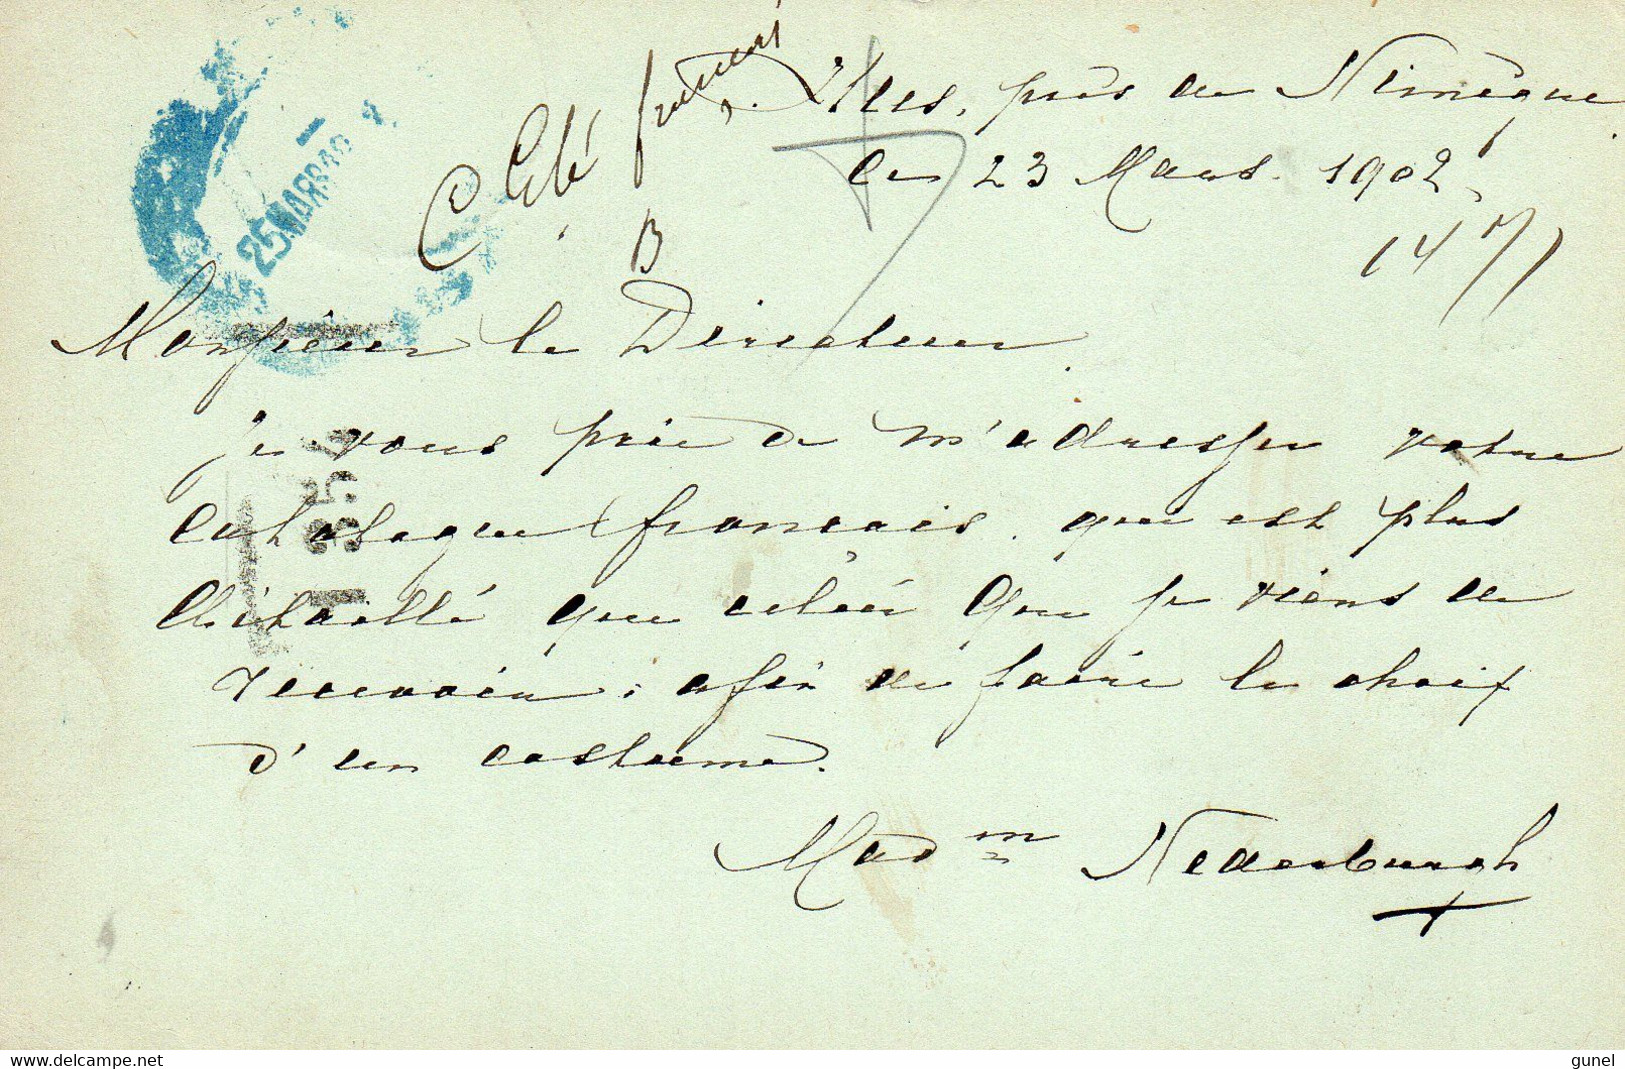 près de Nimègue
le 23 Mars 1902
C Eté français
B
25 MARS
Monsieur le Directeur
je vous prie de m'adresser votre
catalogue français. que est plus
détaillé que celui que je viens de
recevoir, afin de faire le choix
d'un costume.
Mad m Nederburgh
www.delcampe.net
gunel